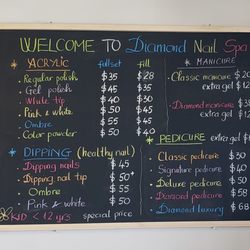 WELCOME TO Diamond Nail Spa
ACRYLIC fullset fill
Regular polish $35 $28
Gel polish $45 $35
White tip $40 $30
Pink & white $50 $40
Ombre $55 $45
Color powder $50 $40
DIPPING (healthy nail)
Dipping nails $45
Dipping nail tip $50+
Ombre $55
Pink & white $50
KID < 12 yrs special price
MANICURE
Classic manicure $20
extra gel $12
Diamond manicure $3
extra gel $12
PEDICURE extra gel $1
Classic pedicure $30
Signature pedicure $40
Deluxe pedicure $50
Diamond pedicure $58
Diamond luxury $68